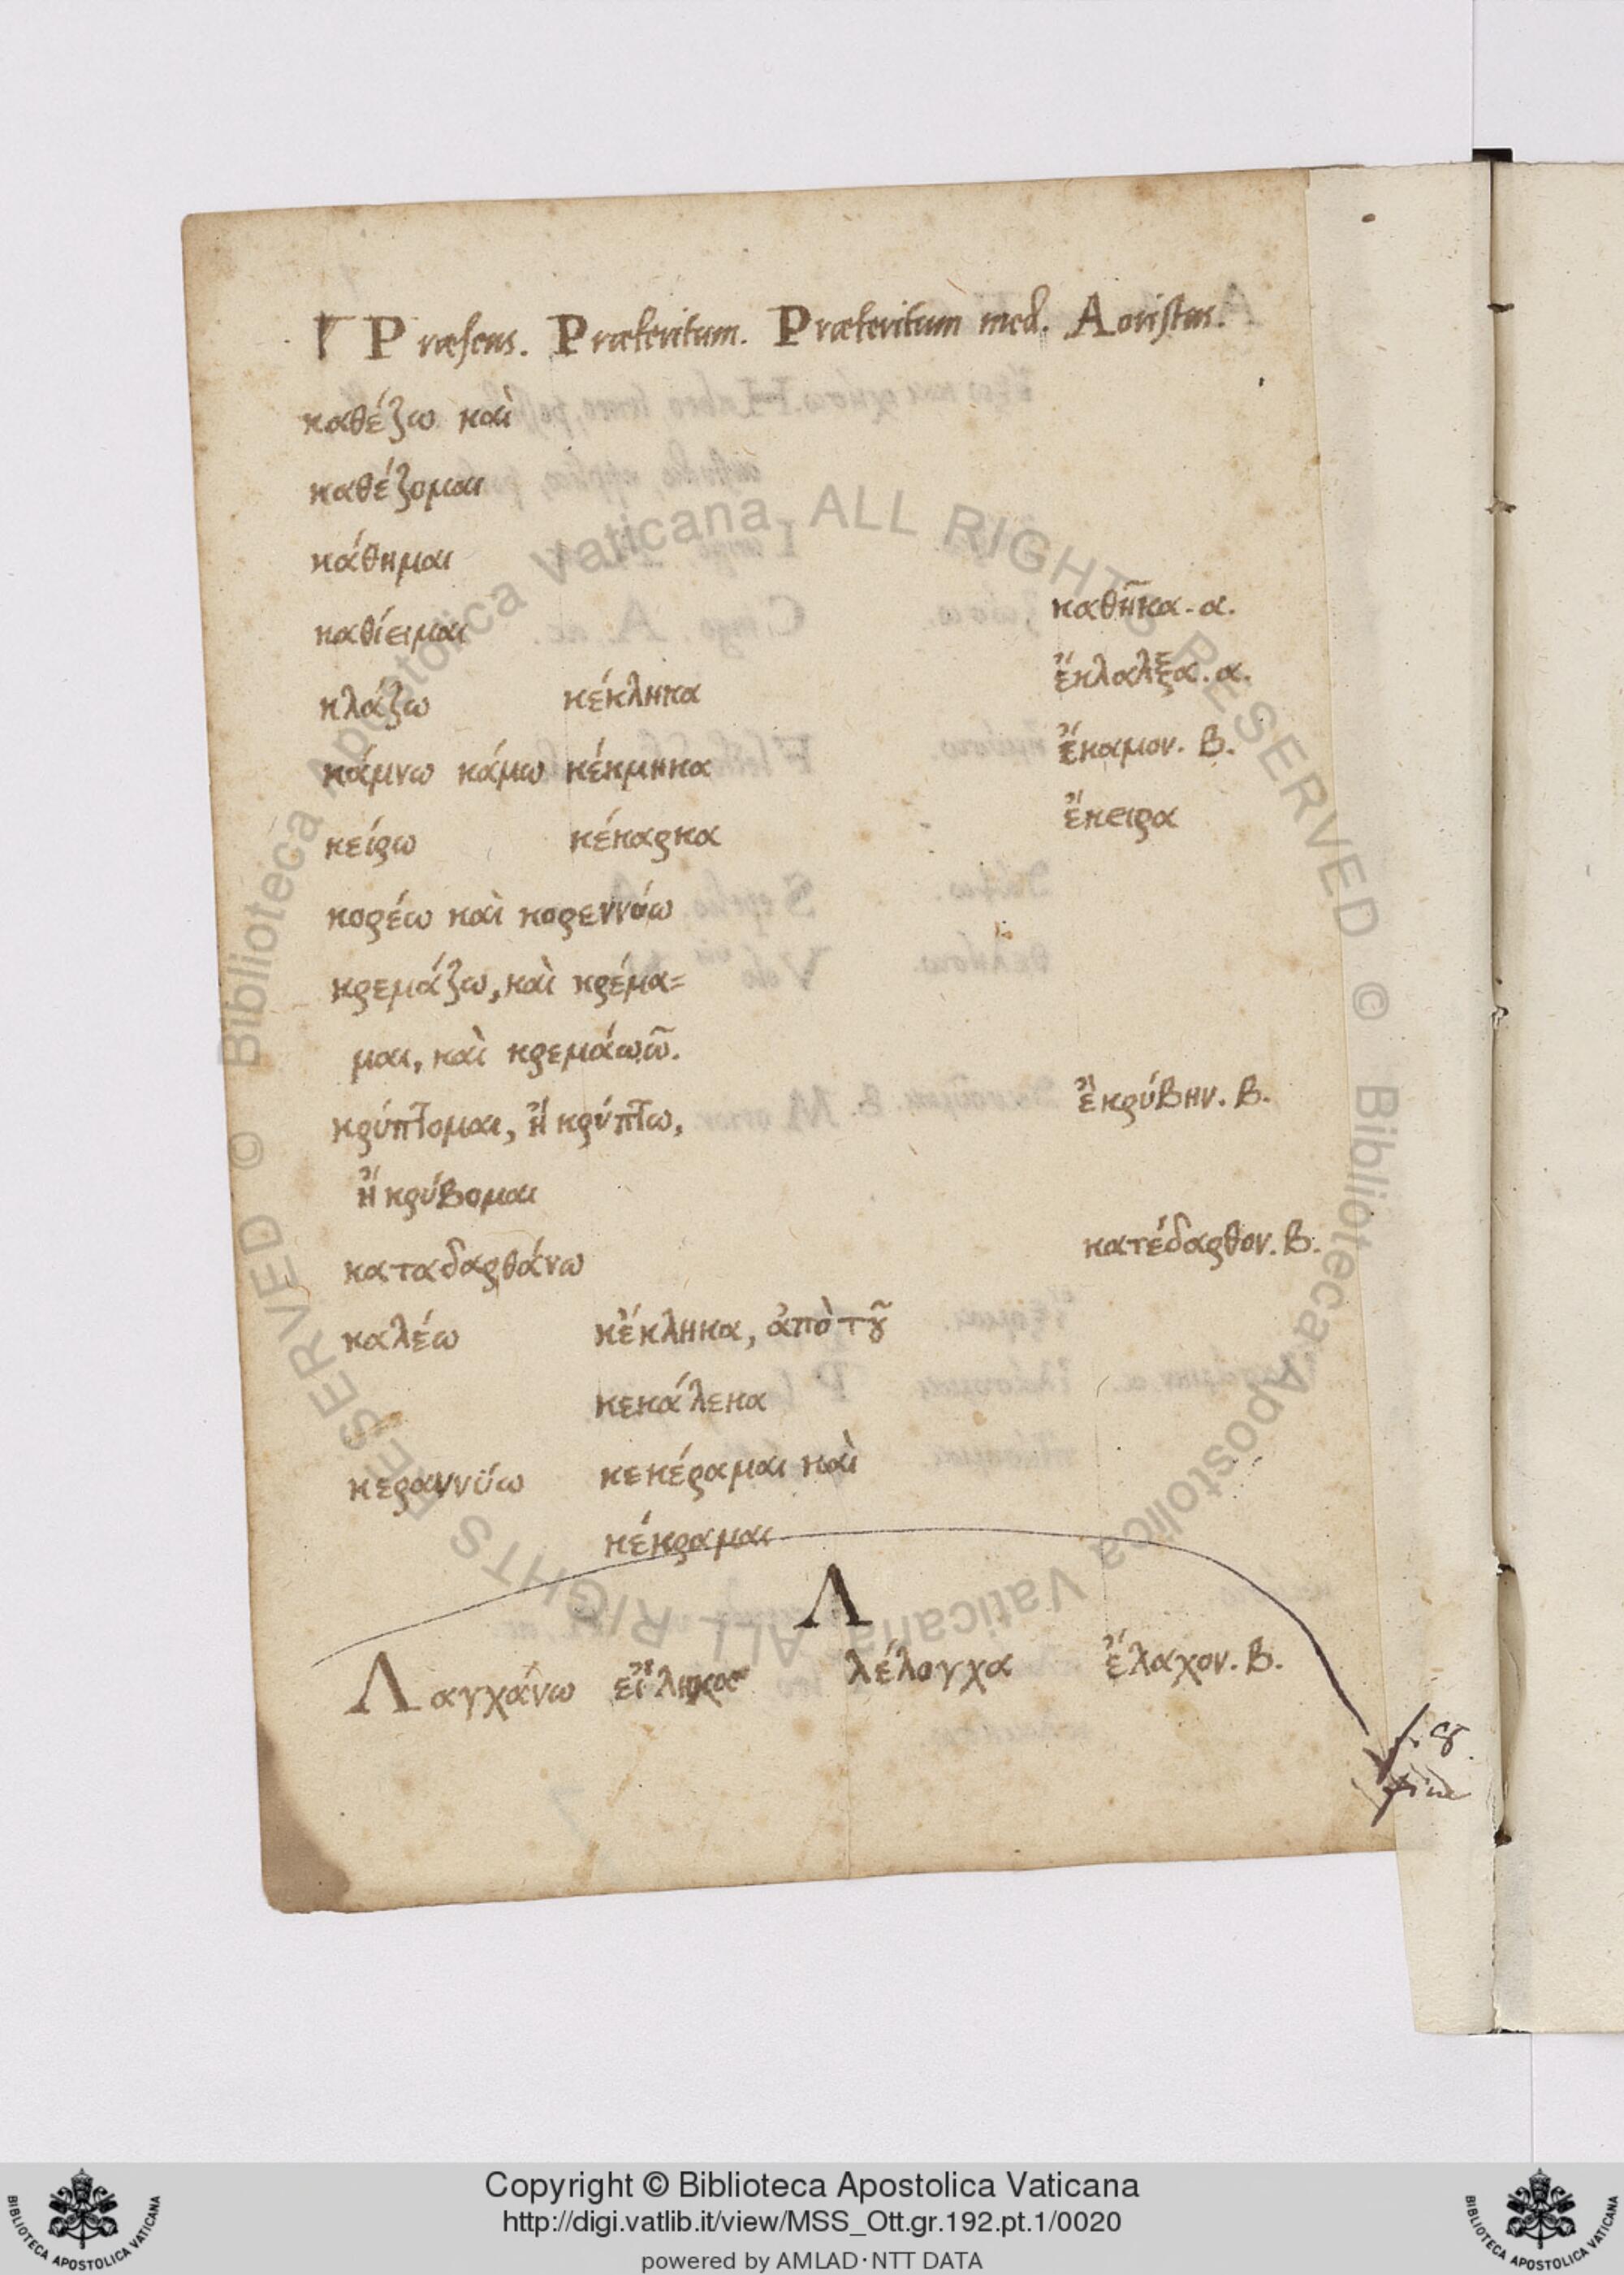 Præsens. Præteritum. Præteritum med. Aoristus.
καθέζω καὶ
καθέζομαι
κάθημαι
καθίειμαι καθῆκα. α.
κλάζω κέκληκα ἔκλαλξα. α.
κάμνω κάμω κέκμηκα ἔκαμον. β.
κείρω κέκαρκα ἔκειρα
κορέω καὶ κορεννύω
κρεμάζω, καὶ κρέμα=
μαι, καὶ κρεμάωῶ.
κρύπτομαι, ἢ κρύπτω, ἐκρύβην. β.
ἢ κρύβομαι
καταδαρθάνω κατέδαρθον. β.
καλέω κέκληκα, ἀπὸ τοῦ
κεκάλεκα
κεραννύω κεκέραμαι καὶ
κέκραμαι
Λ
Λαγχάνω εἴληχα λέλογχα ἔλαχον. β.
Copyright © Biblioteca Apostolica Vaticana
http://digi.vatlib.it/view/MSS_Ott.gr.192.pt.1/0020
powered by AMLAD·NTT DATA
BIBLIOTECA APOSTOLICA VATICANA
BIBLIOTECA APOSTOLICA VATICANA
© Biblioteca Apostolica Vaticana, ALL RIGHTS RESERVED © Biblioteca Apostolica Vaticana, ALL RIGHTS RESERVED